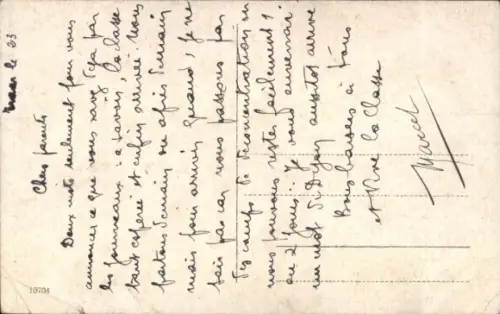 le 23
Chers parents
Deux mots seulement pour vous
annoncer ce que vous savez déjà par
les journaux : à savoir, la classe
tant espérée est enfin arrivée. Nous
partons demain ou après demain
mais pour arriver quand, je ne
sais pas car nous passons par
des camps de déconcentration où
nous pouvons rester facilement 1
ou 2 jours. Je vous enverrai
un mot de Dijon aussitôt arrivé
Bons baisers à tous
et Vive la Classe
Marcel
19704